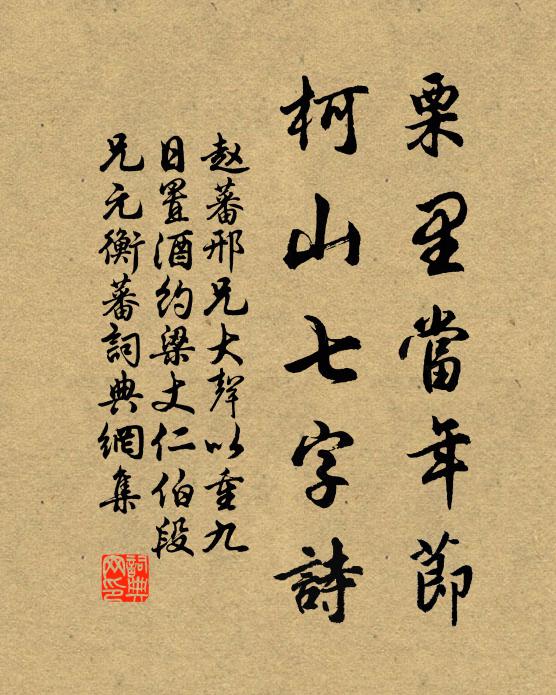 栗里當年節
柯山七字詩
赵蕃邢兄大聲以重九
日置酒約梁丈仁伯段
兄元衡蕃詞典網集
詞典网印